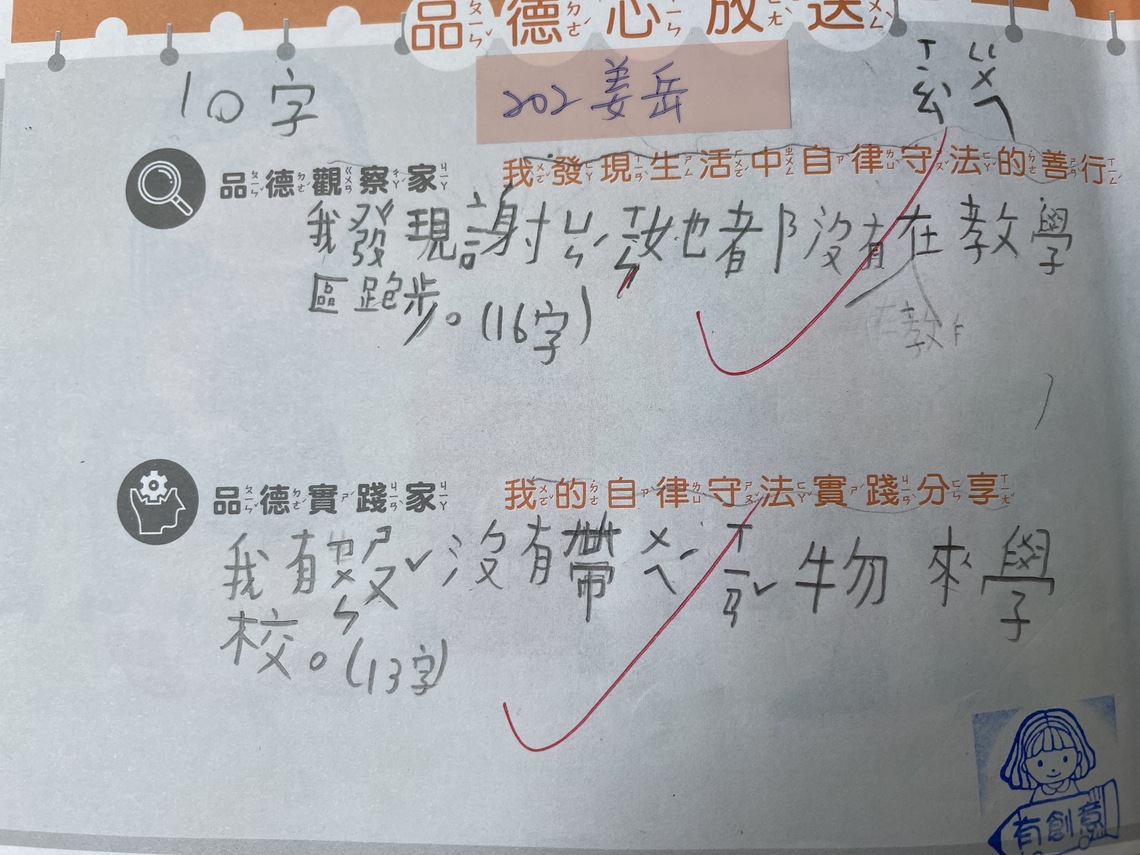 品德心放送
10字
202 姜岳
品德觀察家 我發現生活中自律守法的善行
我發現謝ㄩㄣˊㄒㄧㄣ她都沒有在教學
區跑步。(16字)
品德實踐家 我的自律守法實踐分享
我有ㄗㄨㄣㄕㄡˇ沒有帶ㄨㄟˊㄒㄧㄢˇ物來學
校。(13字)
有創意